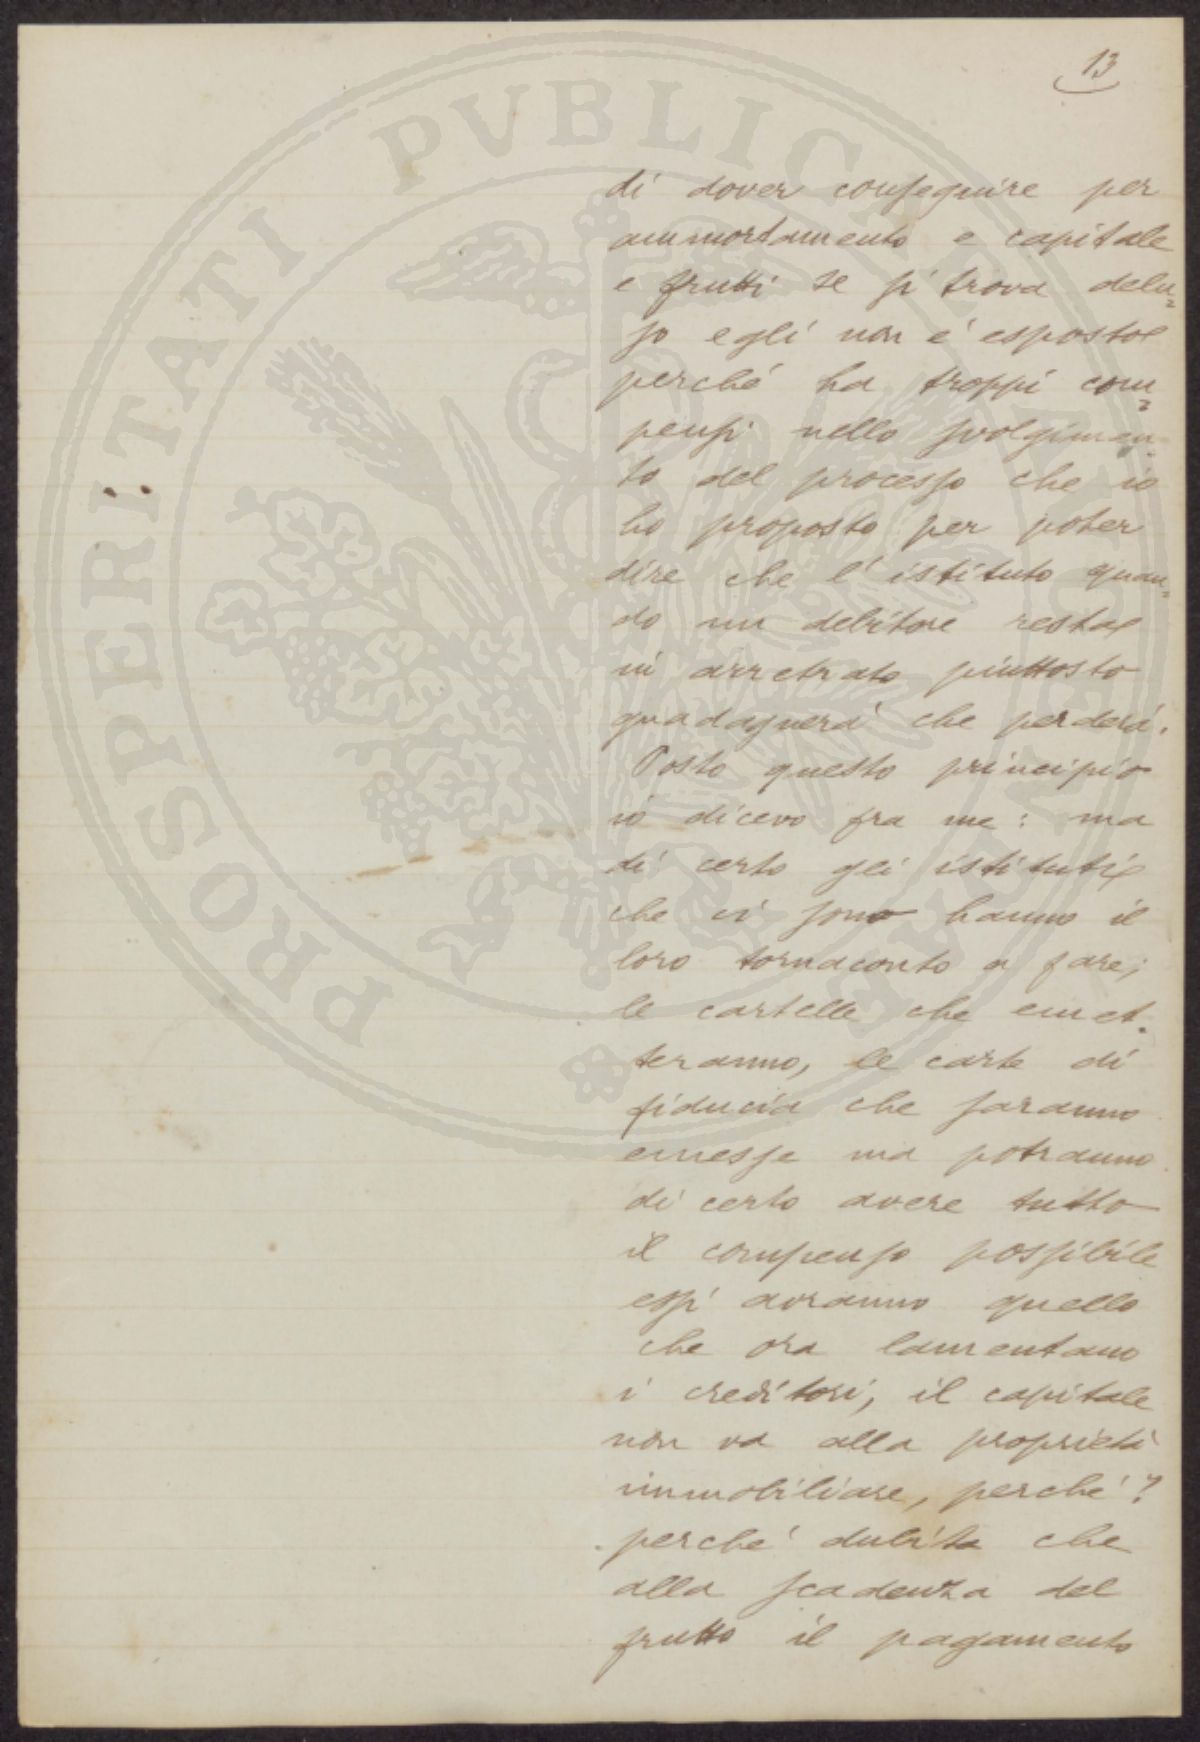 13
di dover conseguire per
ammortamento e capitale
e frutti se si trova delu=
so egli non è esposto
perché ha troppi com=
pensi nello svolgimen=
to del processo che io
ho proposto per poter
dire che l'istituto quan=
do un debitore resta
in arretrato piuttosto
guadagnerà che perderà.
Posto questo principio
io dicevo fra me: ma
di certo gli istituti
che vi sono hanno il
loro tornaconto a fare;
le cartelle che emet=
teranno, le carte di
fiducia che saranno
emesse ma potranno
di certo avere tutto
il compenso possibile
essi avranno quello
che ora lamentano
i creditori, il capitale
non va alla proprietà
immobiliare, perché?
perché dubita che
alla scadenza del
frutto il pagamento
PROSPERITATI PVBLICAE AVGENDAE